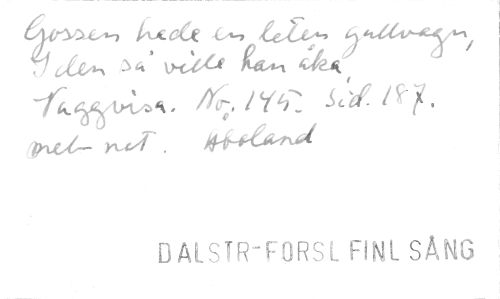 Gossen hade en leten gullvagn,
I den så ville han åka,
Vaggvisa. No. 145. Sid. 187.
med not. Åboland
DALSTR-FORSL FINL SÅNG